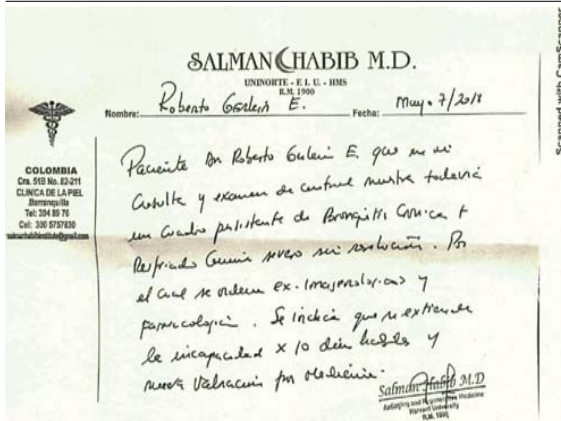 SALMAN HABIB M.D.
UNINORTE - F. I. U. - HMS
R.M. 1900
Nombre: Roberto Gerlein E. Fecha: May. 7/2018
COLOMBIA
Cra. 51B No. 82-211
CLINICA DE LA PIEL
Barranquilla
Tel: 304 89 76
Cel: 300 5757830
salmanhabibinstitute@gmail.com
Paciente Dr Roberto Gerlein E. que en mi
Consulta y examen de control muestra todavía
un Cuadro persistente de Bronquitis Cronica +
Resfriado Comun severo sin resolución. Por
el cual se ordena ex. Imagenologicos y
farmacología. Se indica que se extiende
la incapacidad x 10 dias habiles y
nueva Valoración por Medicina.
Salman Habib M.D
Antiaging and Regenerative Medicine
Harvard University
R.M. 1900
Scanned with CamScanner